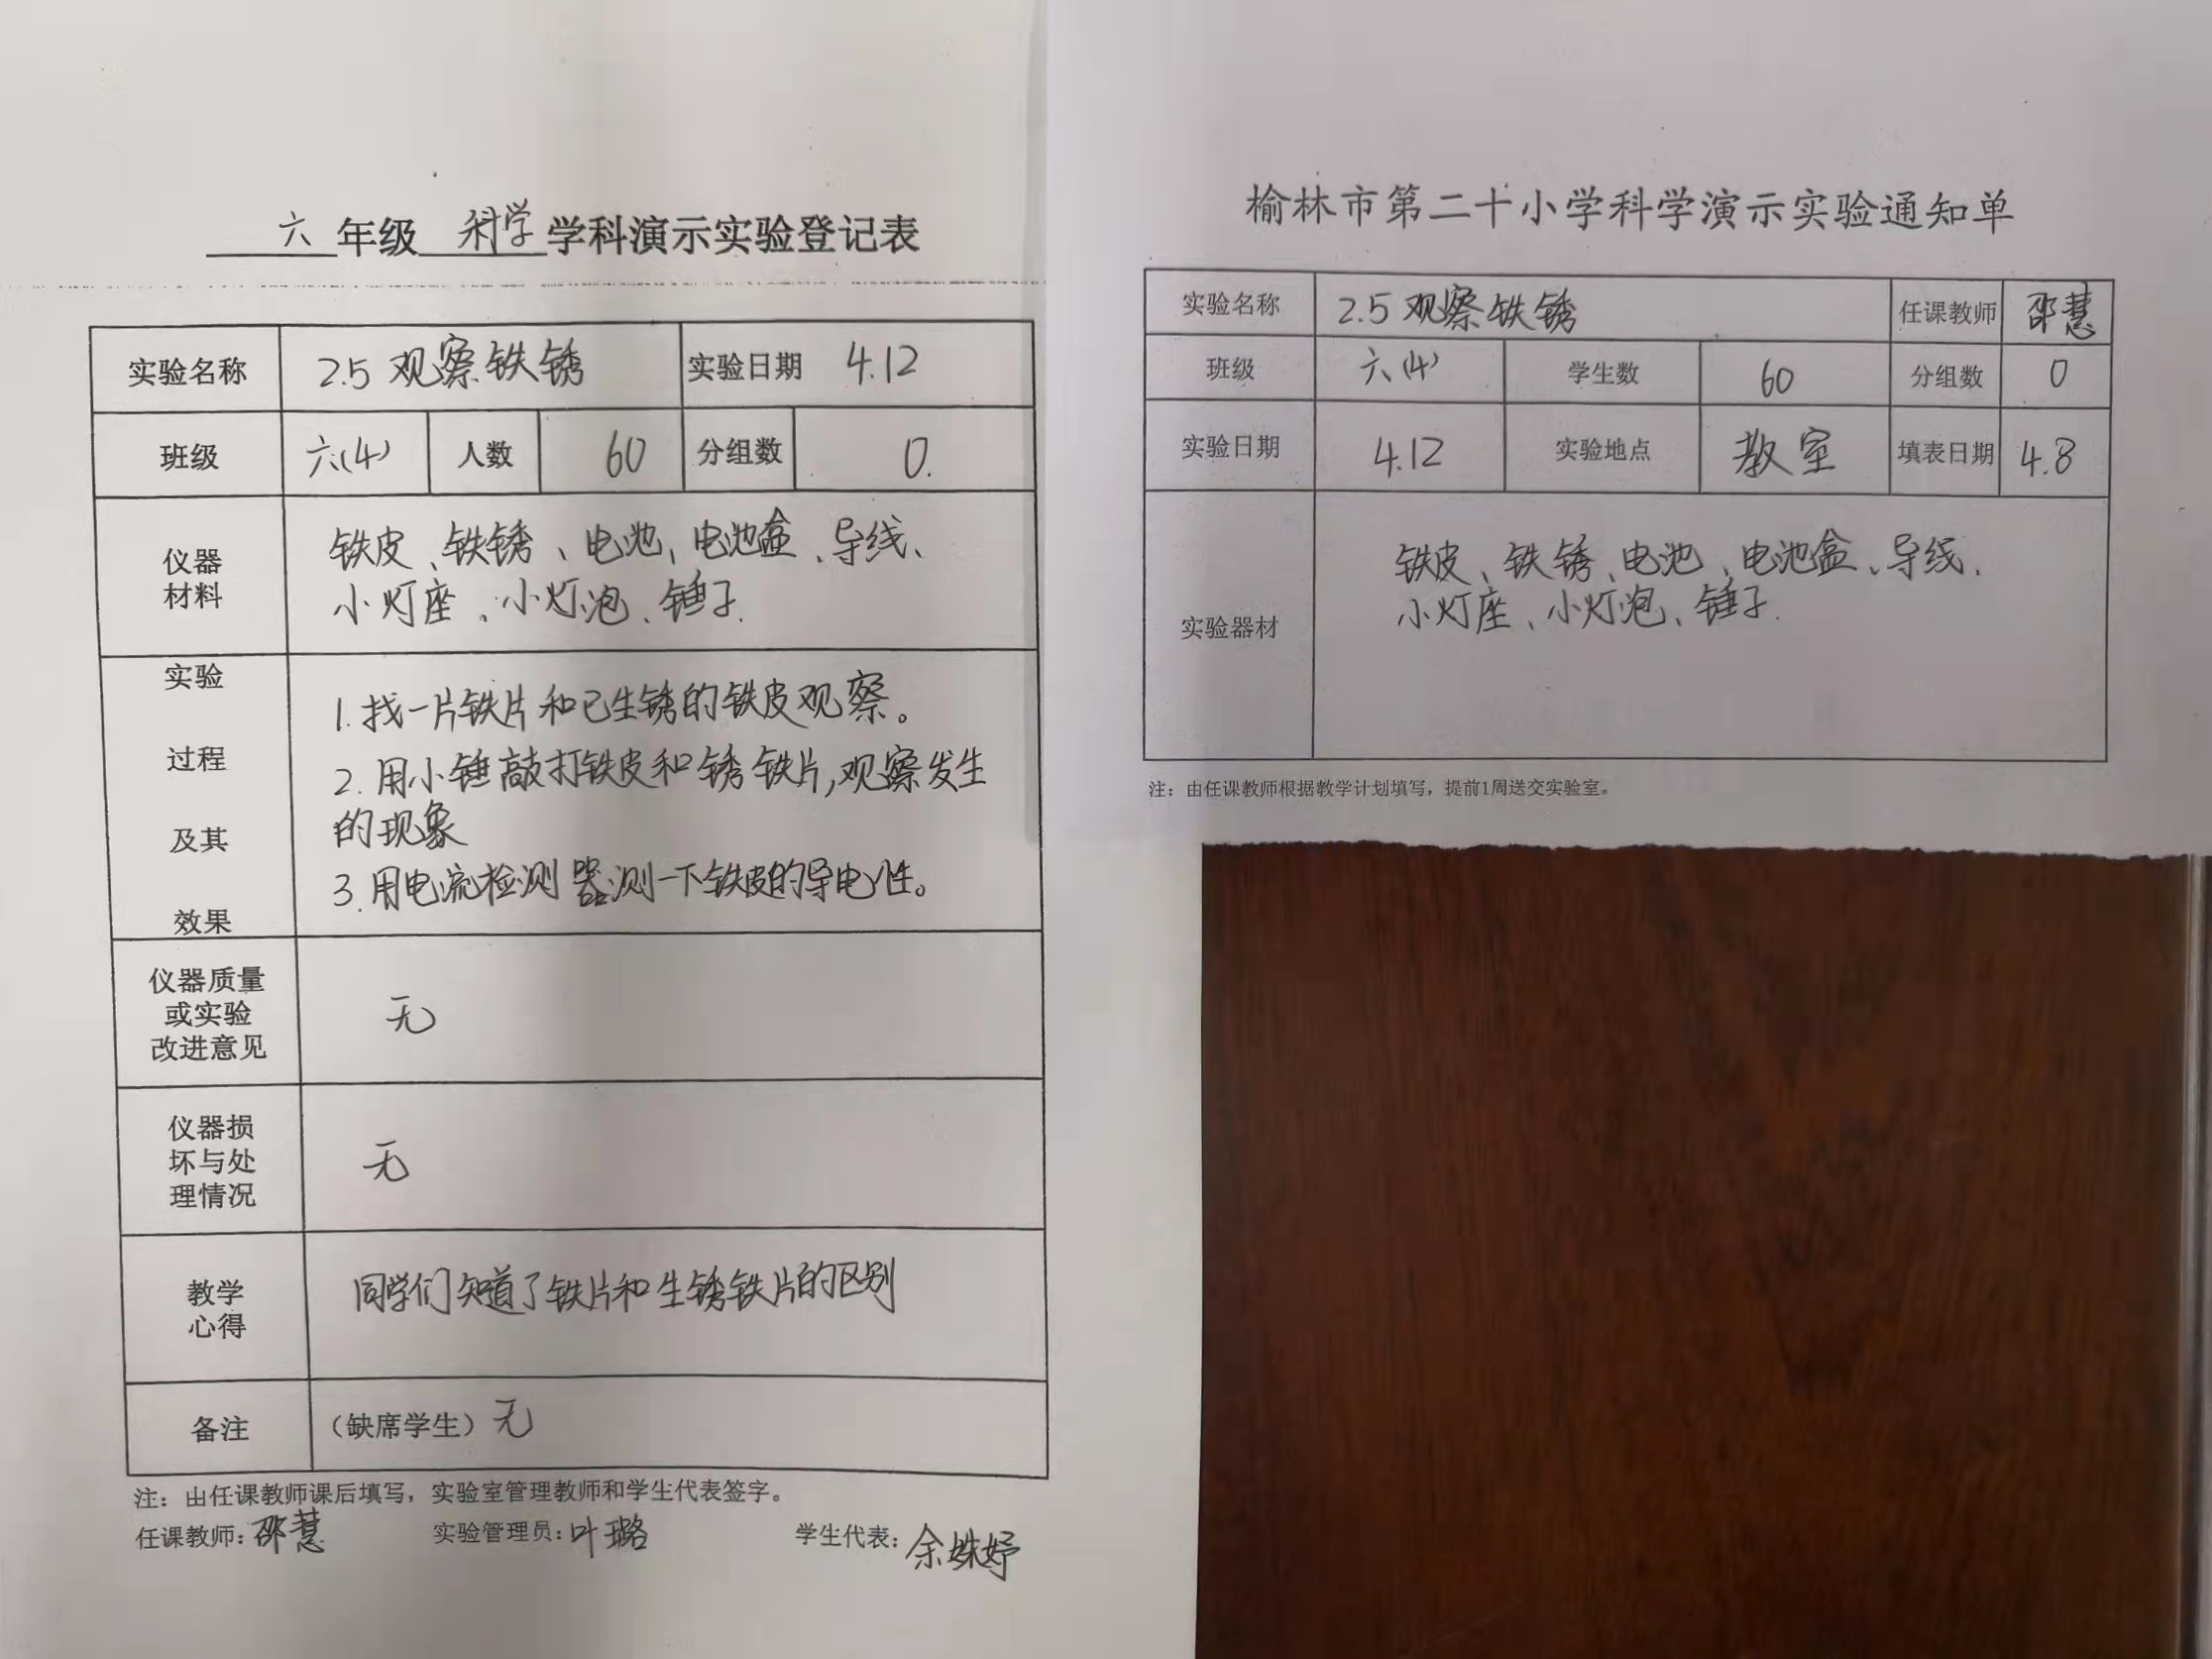 六年级科学学科演示实验登记表
实验名称 2.5 观察铁锈 实验日期 4.12
班级 六(4) 人数 60 分组数 0.
仪器 材料 铁皮、铁锈、电池、电池盒、导线、
小灯座、小灯泡、锤子.
实验 过程 及其 效果
1. 找一片铁片和已生锈的铁皮观察。
2. 用小锤敲打铁皮和锈铁片,观察发生
的现象
3. 用电流检测器测一下铁皮的导电性。
仪器质量
或实验
改进意见
无
仪器损
坏与处
理情况
无
教学
心得
同学们知道了铁片和生锈铁片的区别
备注 (缺席学生) 无
注：由任课教师课后填写，实验室管理教师和学生代表签字。
任课教师: 邵慧 实验管理员: 叶璐 学生代表: 余姝妤
榆林市第二十小学科学演示实验通知单
实验名称 2.5 观察铁锈 任课教师 邵慧
班级 六(4) 学生数 60 分组数 0
实验日期 4.12 实验地点 教室 填表日期 4.8
实验器材
铁皮、铁锈、电池、电池盒、导线、
小灯座、小灯泡、锤子.
注：由任课教师根据教学计划填写，提前1周送交实验室。